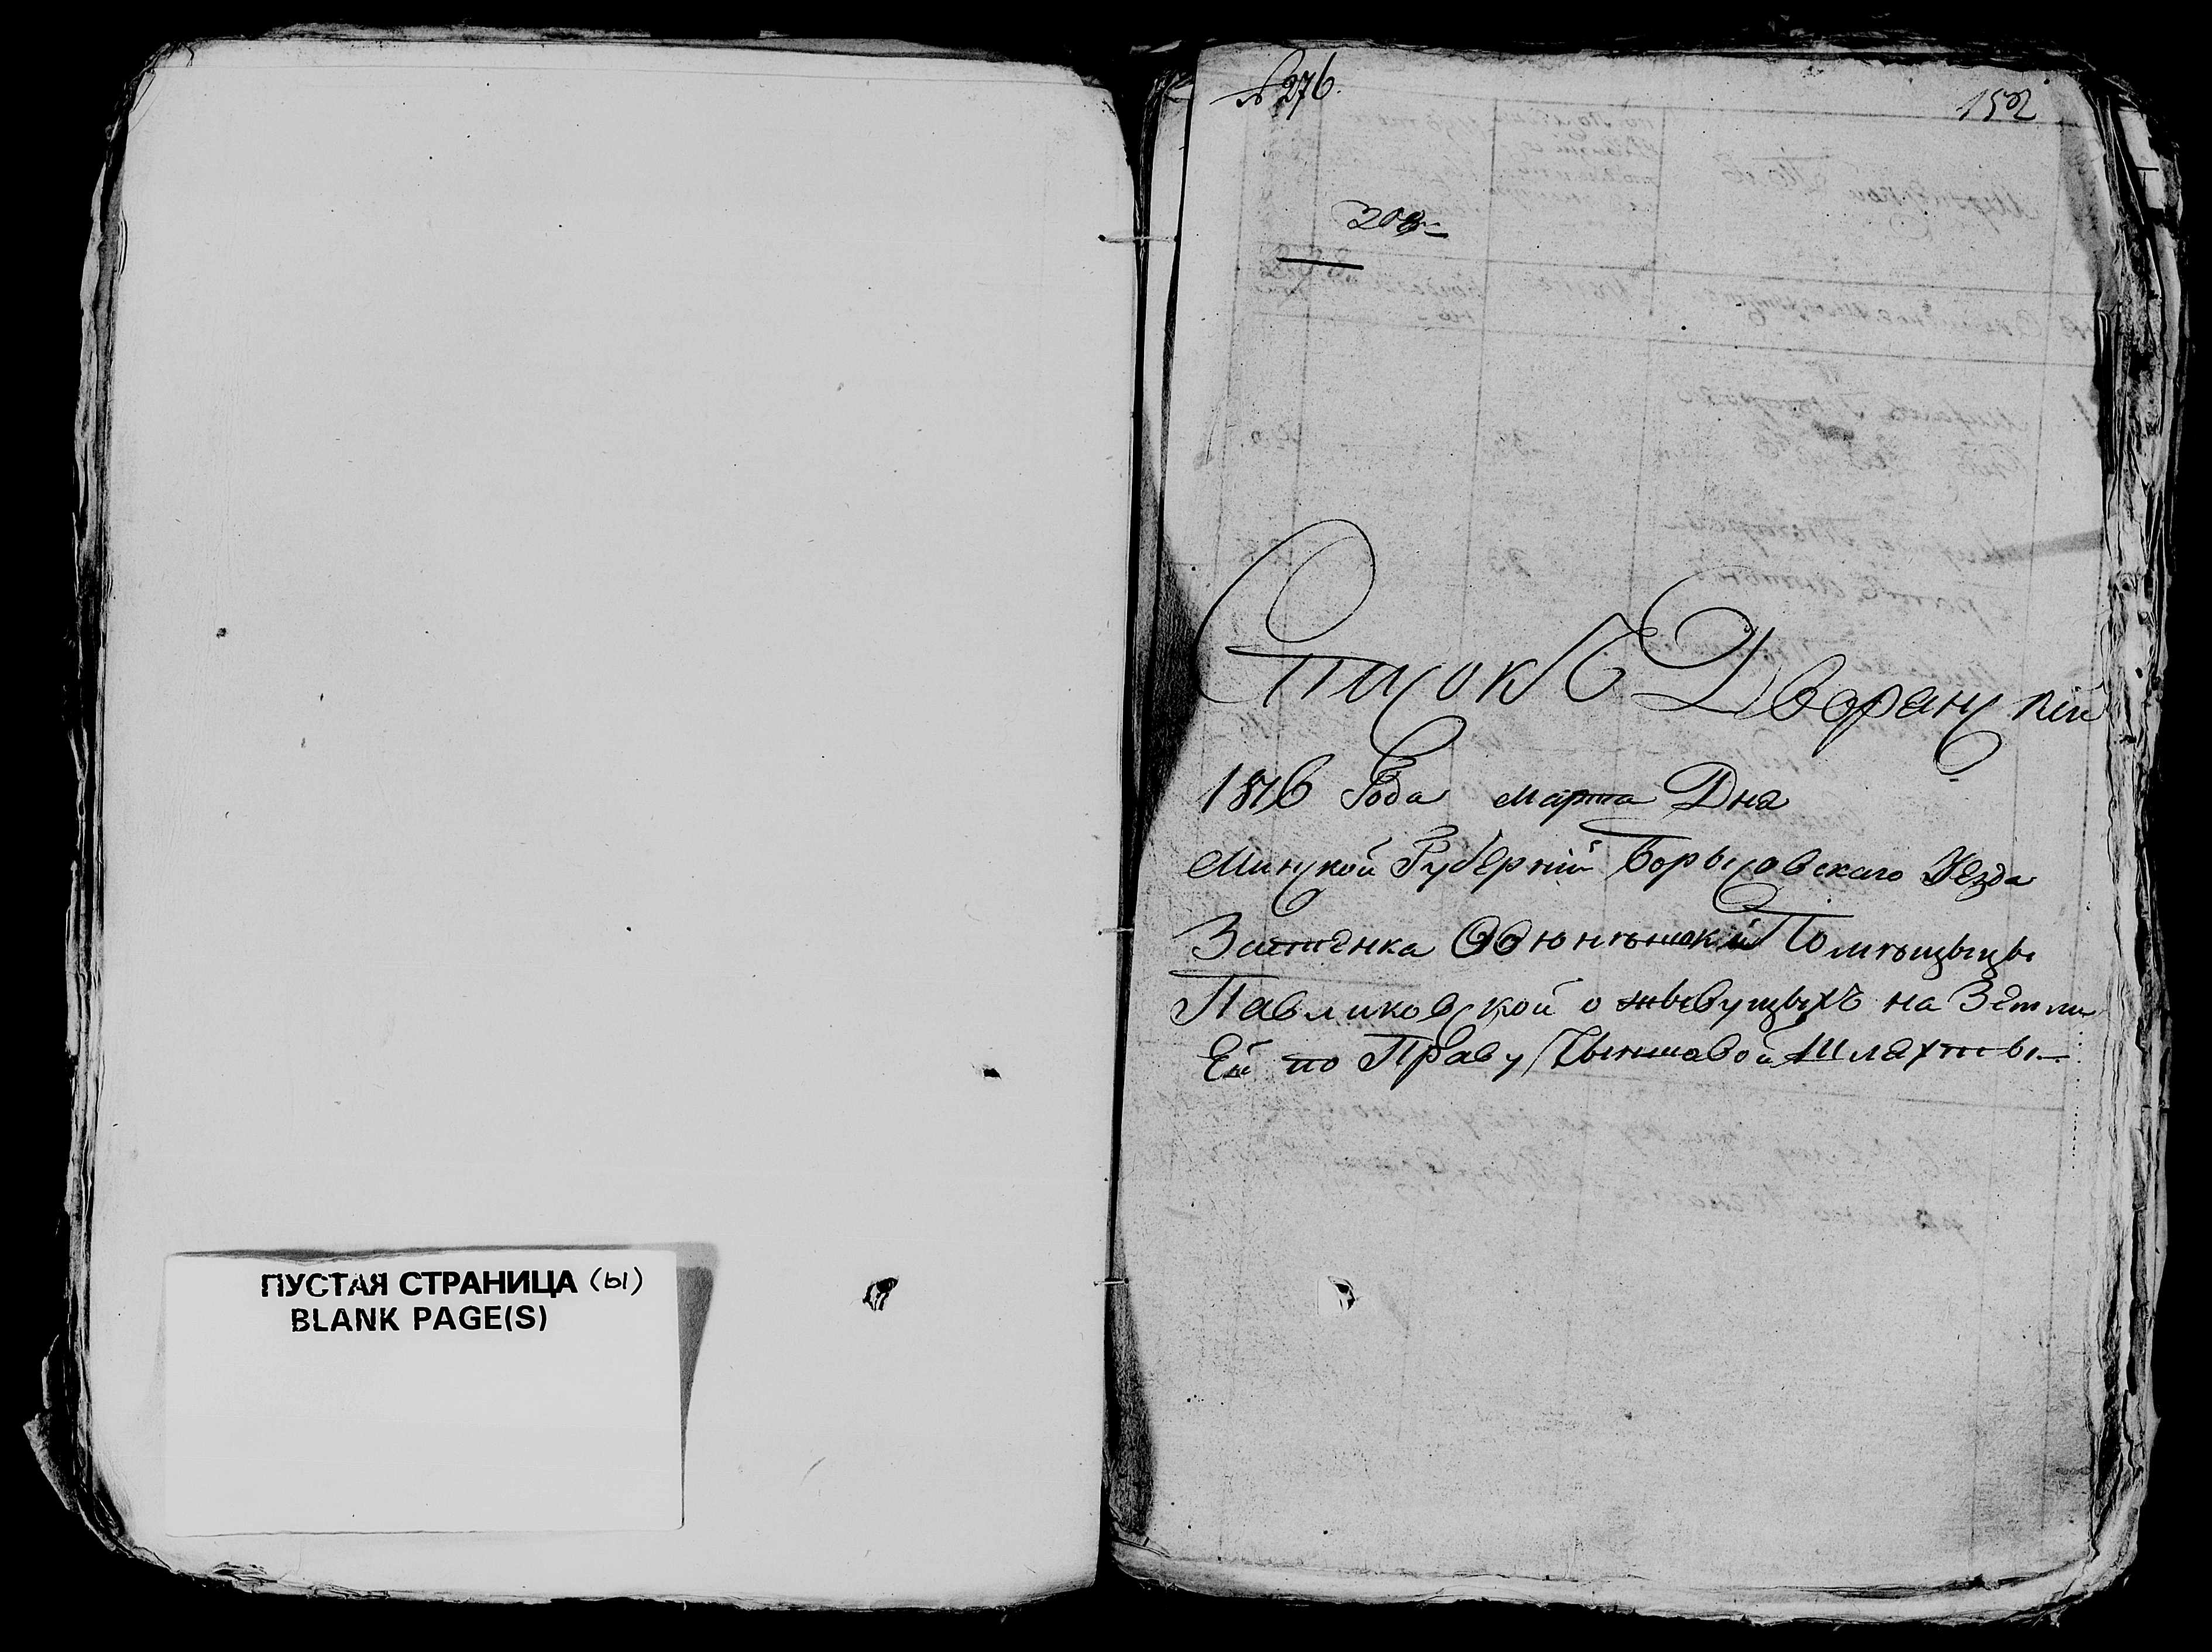 ПУСТАЯ СТРАНИЦА (ы)
BLANK PAGE(S)
№ 276.
152
208
Списокъ Дворанскій
1816 Года марта Дня
Минской Губерніи Борысовского Уезда
Застенка Помѣщыцы
Павликовской о жывущыхъ на Земли
Ей по Праву Чыншовой Шляхты